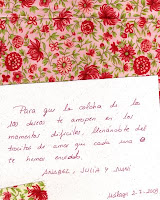 Para que la colcha de los
100 deseos te arropen en los
momentos difíciles, llenándote del
trocitos de amor que cada una
te hemos enviado.
ANABEL, JULIA Y JUANI
Málaga 2-7-2009